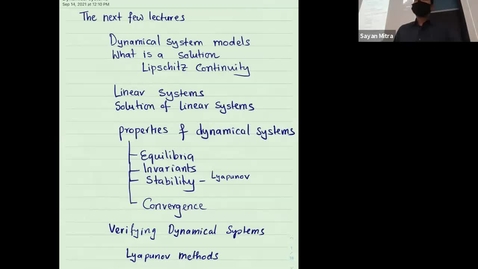 Sep 14, 2021 at 12:10 PM
The next few lectures
Dynamical system models
What is a solution
Lipschitz Continuity
Linear Systems
Solution of Linear Systems
properties of dynamical systems
Equilibria
Invariants
Stability - Lyapunov
Convergence
Verifying Dynamical Systems
Lyapunov methods
Sayan Mitra